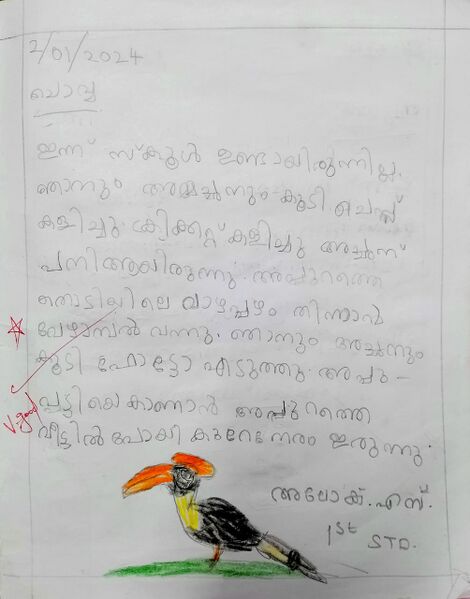 2/01/2024
ചൊവ്വ
ഇന്ന് സ്കൂൾ ഉണ്ടായിരുന്നില്ല.
ഞാനും അമ്മച്ചനും കൂടി ചെസ്സ്
കളിച്ചു. ക്രിക്കറ്റ് കളിച്ചു അച്ഛന്
പനിആയിരുന്നു. അപ്പുറത്തെ
തൊടിയിലെ വാഴപ്പഴം തിന്നാൻ
വേഴാമ്പൽ വന്നു. ഞാനും അച്ഛനും
കൂടി ഫോട്ടോ എടുത്തു. അപ്പു-
പ്പൂട്ടിയെ കാണാൻ അപ്പുറത്തെ
വീട്ടിൽ പോയി കുറേനേരം ഇരുന്നു.
V.good
അലോക്. എസ്.
1st STD.